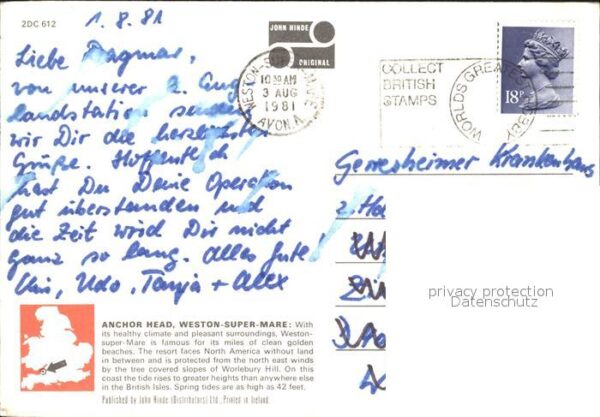 2DC 612
1.8.81
JOHN HINDE
ORIGINAL
Liebe Dagmar,
von unserer 2. Eng
landstation senden
wir Dir die herzlichsten
Grüße. Hoffentlich
hast Du Deine Operation
gut überstanden und
die Zeit wird Dir nicht
ganz so lang. Alles Gute!
Uli, Udo, Tanja + Alex
WESTON-SUPER-MARE
10 30 AM
3 AUG
1981
AVON. A
COLLECT
BRITISH
STAMPS
WORLDS GREATEST HOBBY
18P
Gerresheimer Krankenhaus
privacy protection
Datenschutz
ANCHOR HEAD, WESTON-SUPER-MARE: With
its healthy climate and pleasant surroundings, Weston-
super-Mare is famous for its miles of clean golden
beaches. The resort faces North America without land
in between and is protected from the north east winds
by the tree covered slopes of Worlebury Hill. On this
coast the tide rises to greater heights than anywhere else
in the British Isles. Spring tides are as high as 42 feet.
Published by John Hinde (Distributors) Ltd., Printed in Ireland.